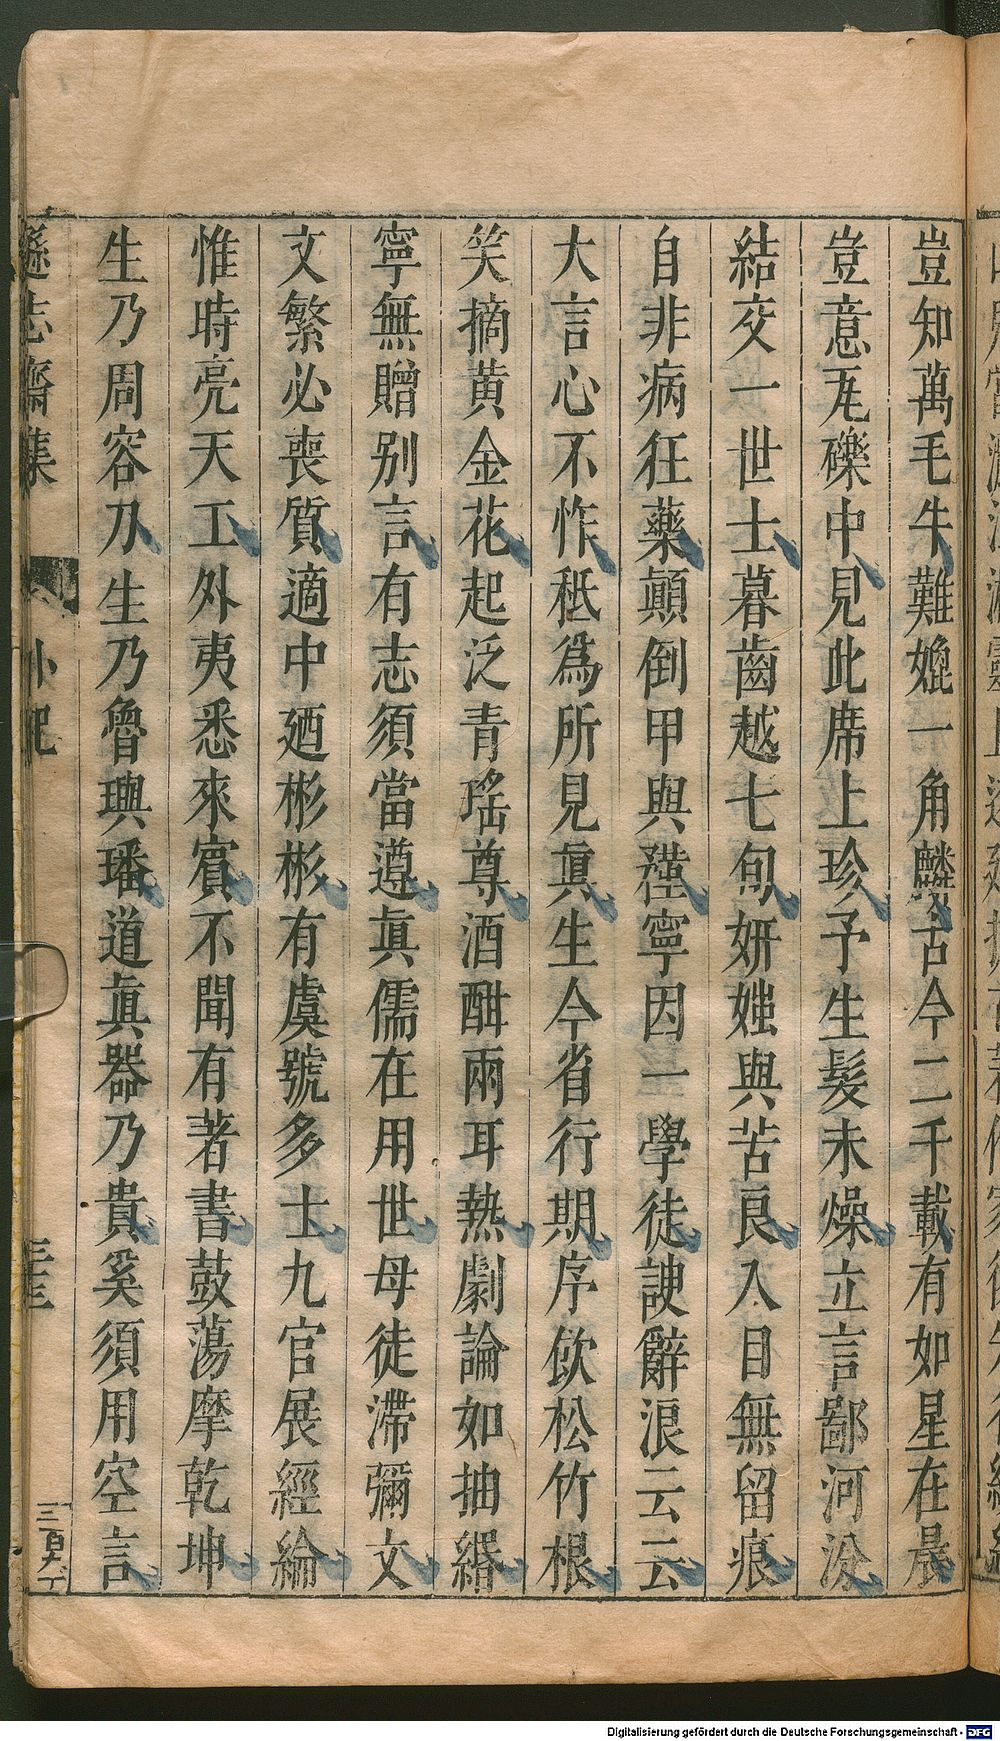 豈知萬毛牛難媲一角麟古今二千載有如星在晨
豈意瓦礫中見此席上珍予生髮未燥立言鄙河汾
結交一世士暮齒越七旬妍媸與苦良入目無留痕
自非病狂藥顛倒甲與寧因一學徒諛辭浪云云
大言心不怍秪爲所見眞生今省行期序飲松竹根
笑摘黄金花起泛青瑤尊酒酣兩耳熱劇論如抽緡
寧無贈别言有志須當遵眞儒在用世母徒滯彌文
文繁必喪質適中廼彬彬有虞號多士九官展經綸
惟時亮天工外夷悉來賓不聞有著書鼓蕩摩乾坤
生乃周容刀生乃魯璵璠道眞器乃貴奚須用空言
遜志齋集
外紀
Digitalisierung gefördert durch die Deutsche Forschungsgemeinschaft - DFG